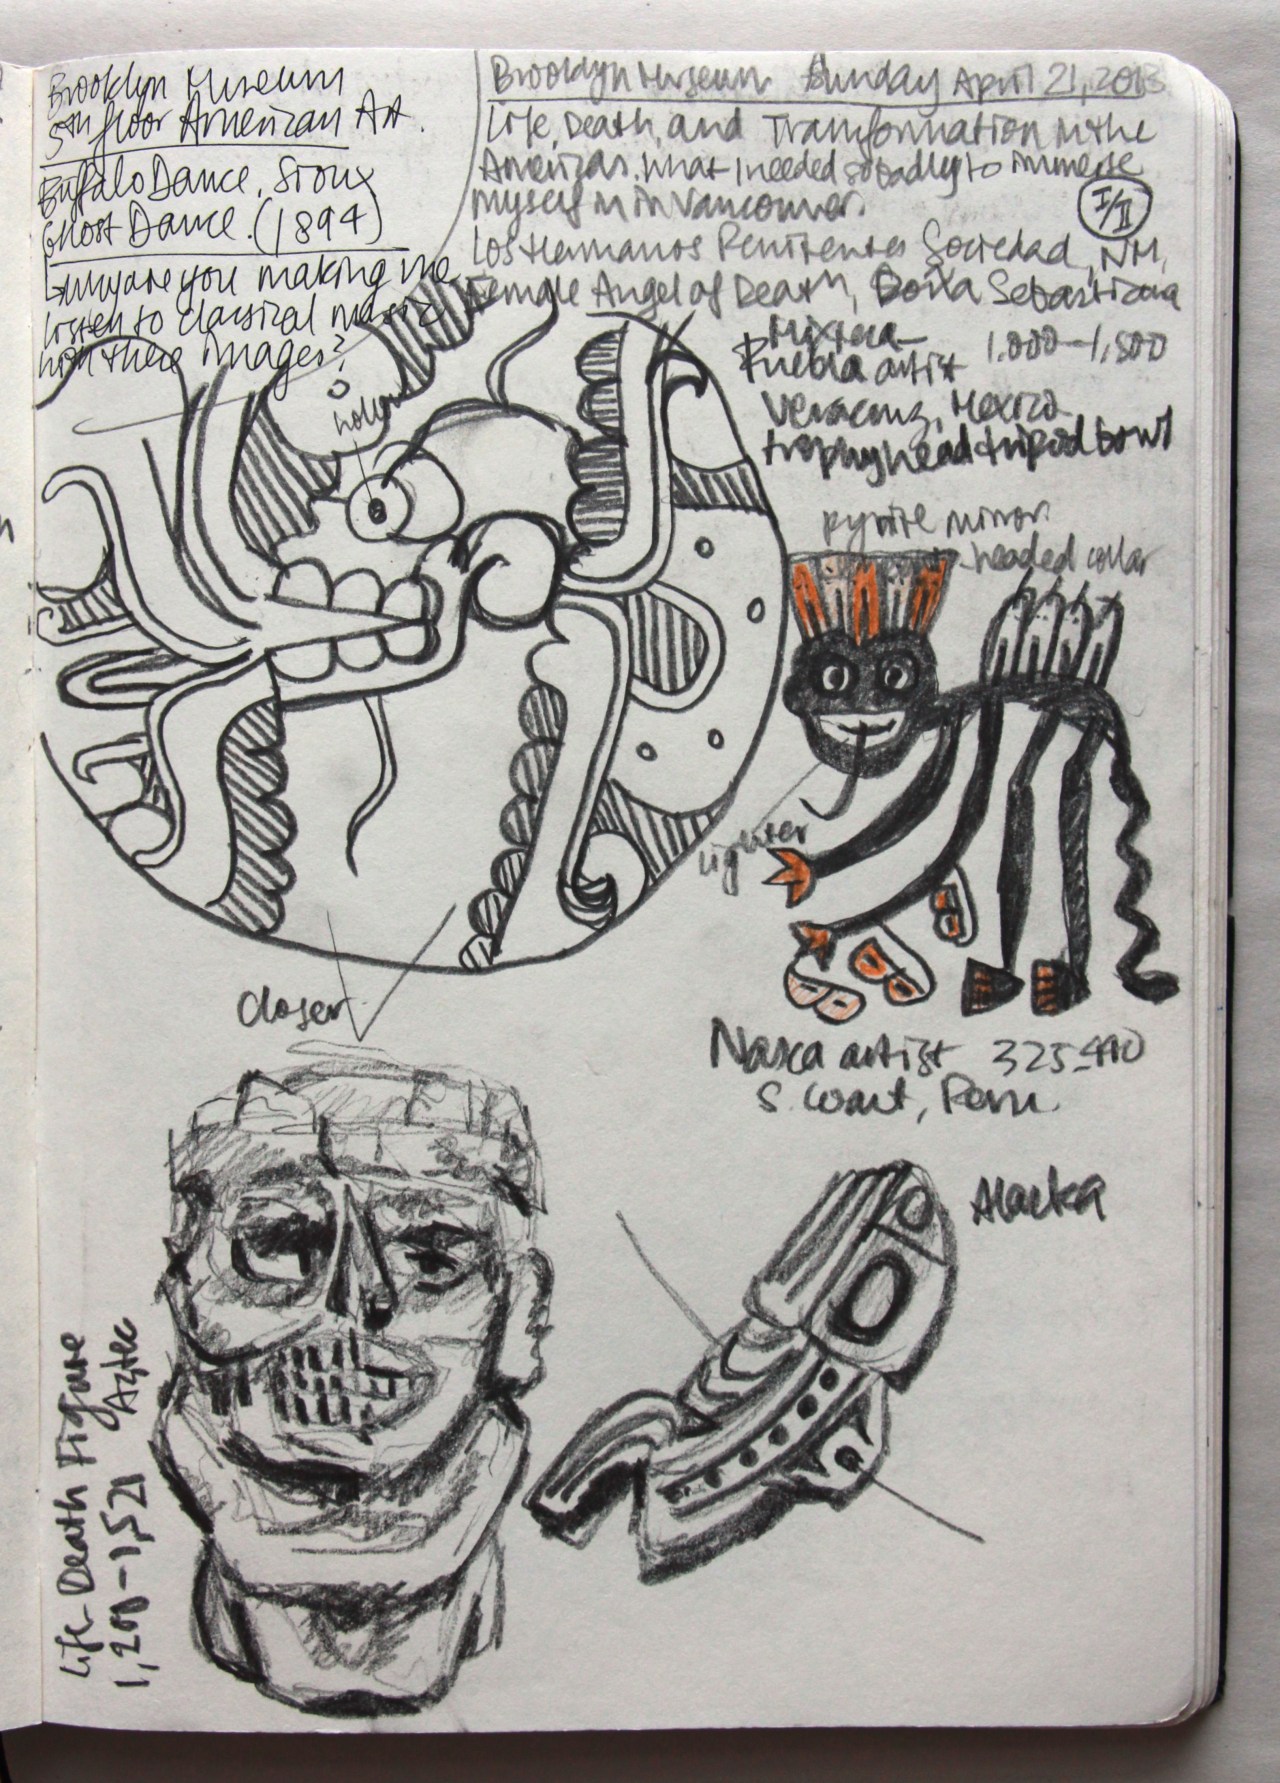 Brooklyn Museum
5th floor American Art.
Buffalo Dance, Sioux
Ghost Dance. (1894)
Why are you making me
listen to classical music
with these images?
Brooklyn Museum Sunday April 21, 2013
Life, Death, and Transformation in the
Americas. What I needed so badly to immerse
myself in in Vancouver.
I/II
Los Hermanos Penitentes Sociedad, NM,
Female Angel of Death, Doña Sebastiana
Mixteca-
Puebla artist 1,000-1,500
Veracruz, Mexico
trophy head tripod bowl
hollow
pyrite mirror
beaded collar
lighter
closer
Nasca artist 325-440
S. Coast, Peru.
Alaska
Life-Death Figure
Aztec
1,200-1,521